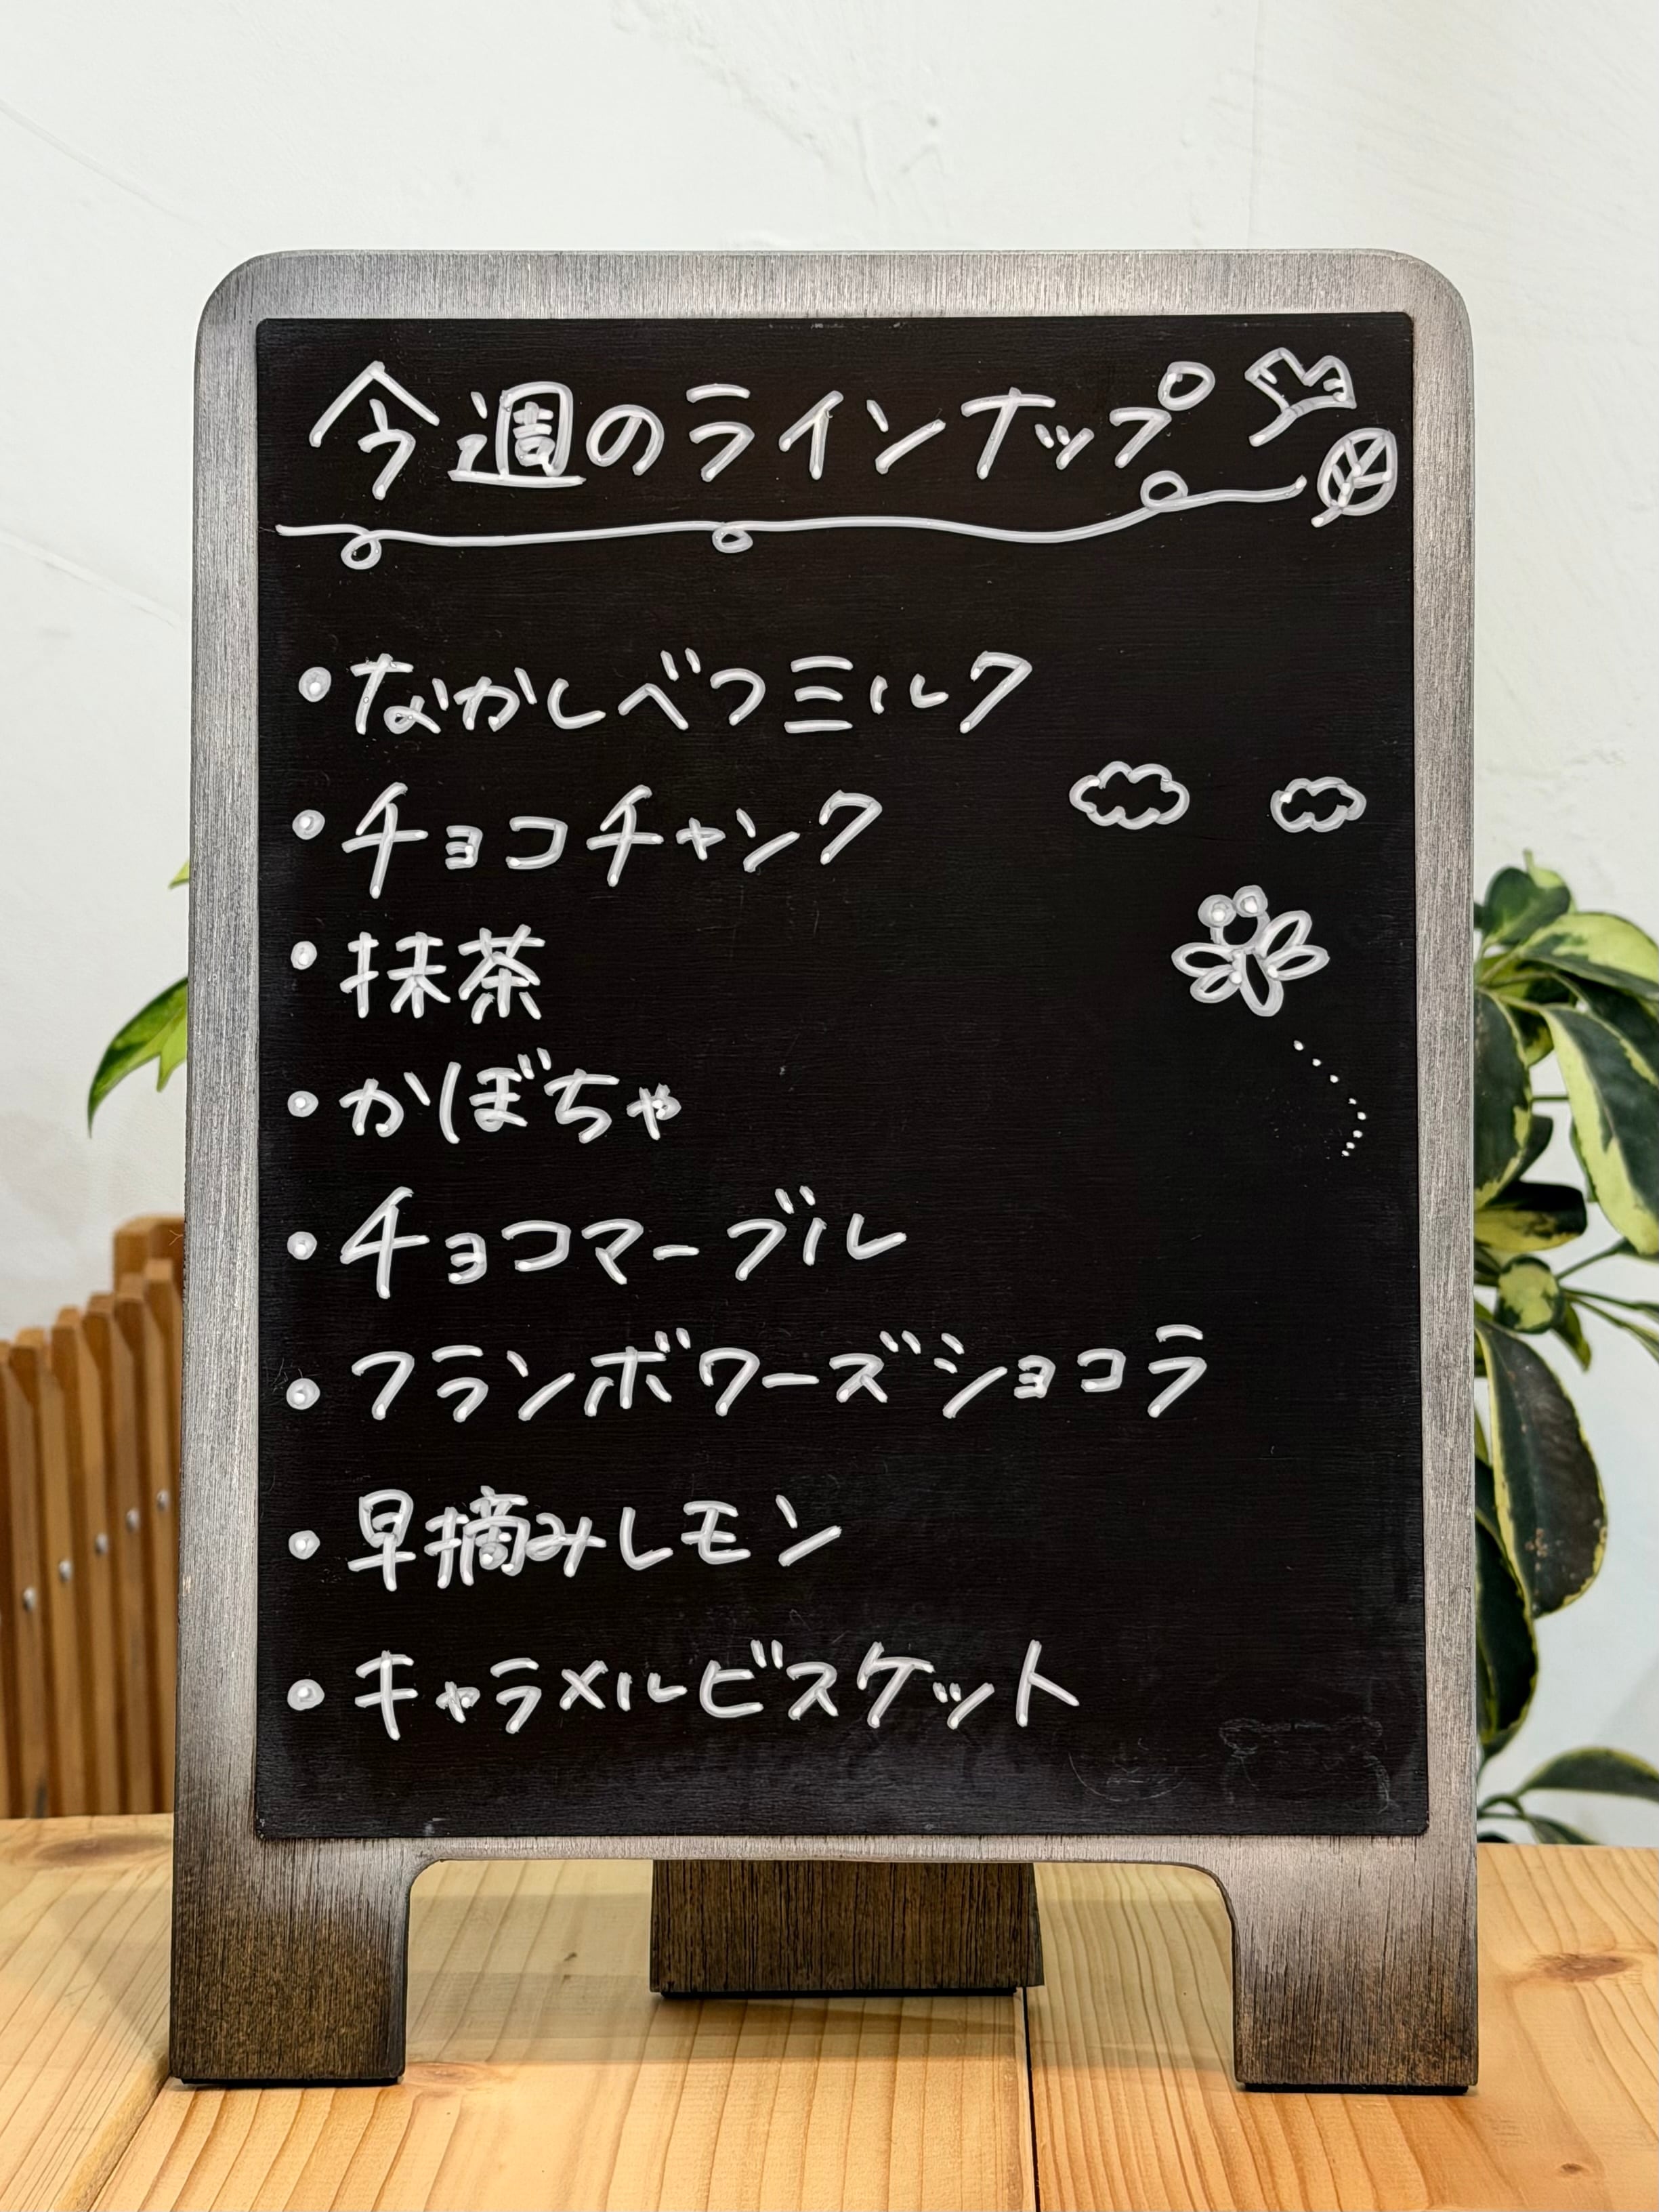 今週のラインナップ
・なかしべつミルク
・チョコチャンク
・抹茶
・かぼちゃ
・チョコマーブル
・フランボワーズショコラ
・早摘みレモン
・キャラメルビスケット